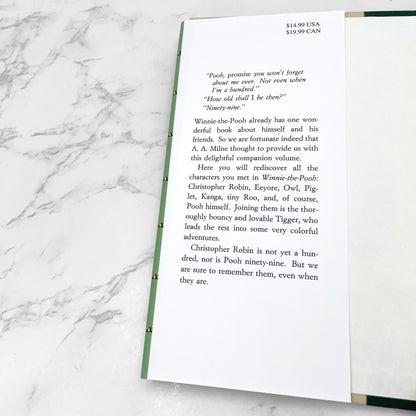 $14.99 USA
$19.99 CAN
"Pooh, promise you won't forget
about me ever. Not even when
I'm a hundred."
"How old shall I be then?"
"Ninety-nine."
Winnie-the-Pooh already has one won-
derful book about himself and his
friends. So we are fortunate indeed that
A. A. Milne thought to provide us with
this delightful companion volume.
Here you will rediscover all the
characters you met in Winnie-the-Pooh:
Christopher Robin, Eeyore, Owl, Pig-
let, Kanga, tiny Roo, and, of course,
Pooh himself. Joining them is the thor-
oughly bouncy and lovable Tigger, who
leads the rest into some very colorful
adventures.
Christopher Robin is not yet a hun-
dred, nor is Pooh ninety-nine. But we
are sure to remember them, even when
they are.